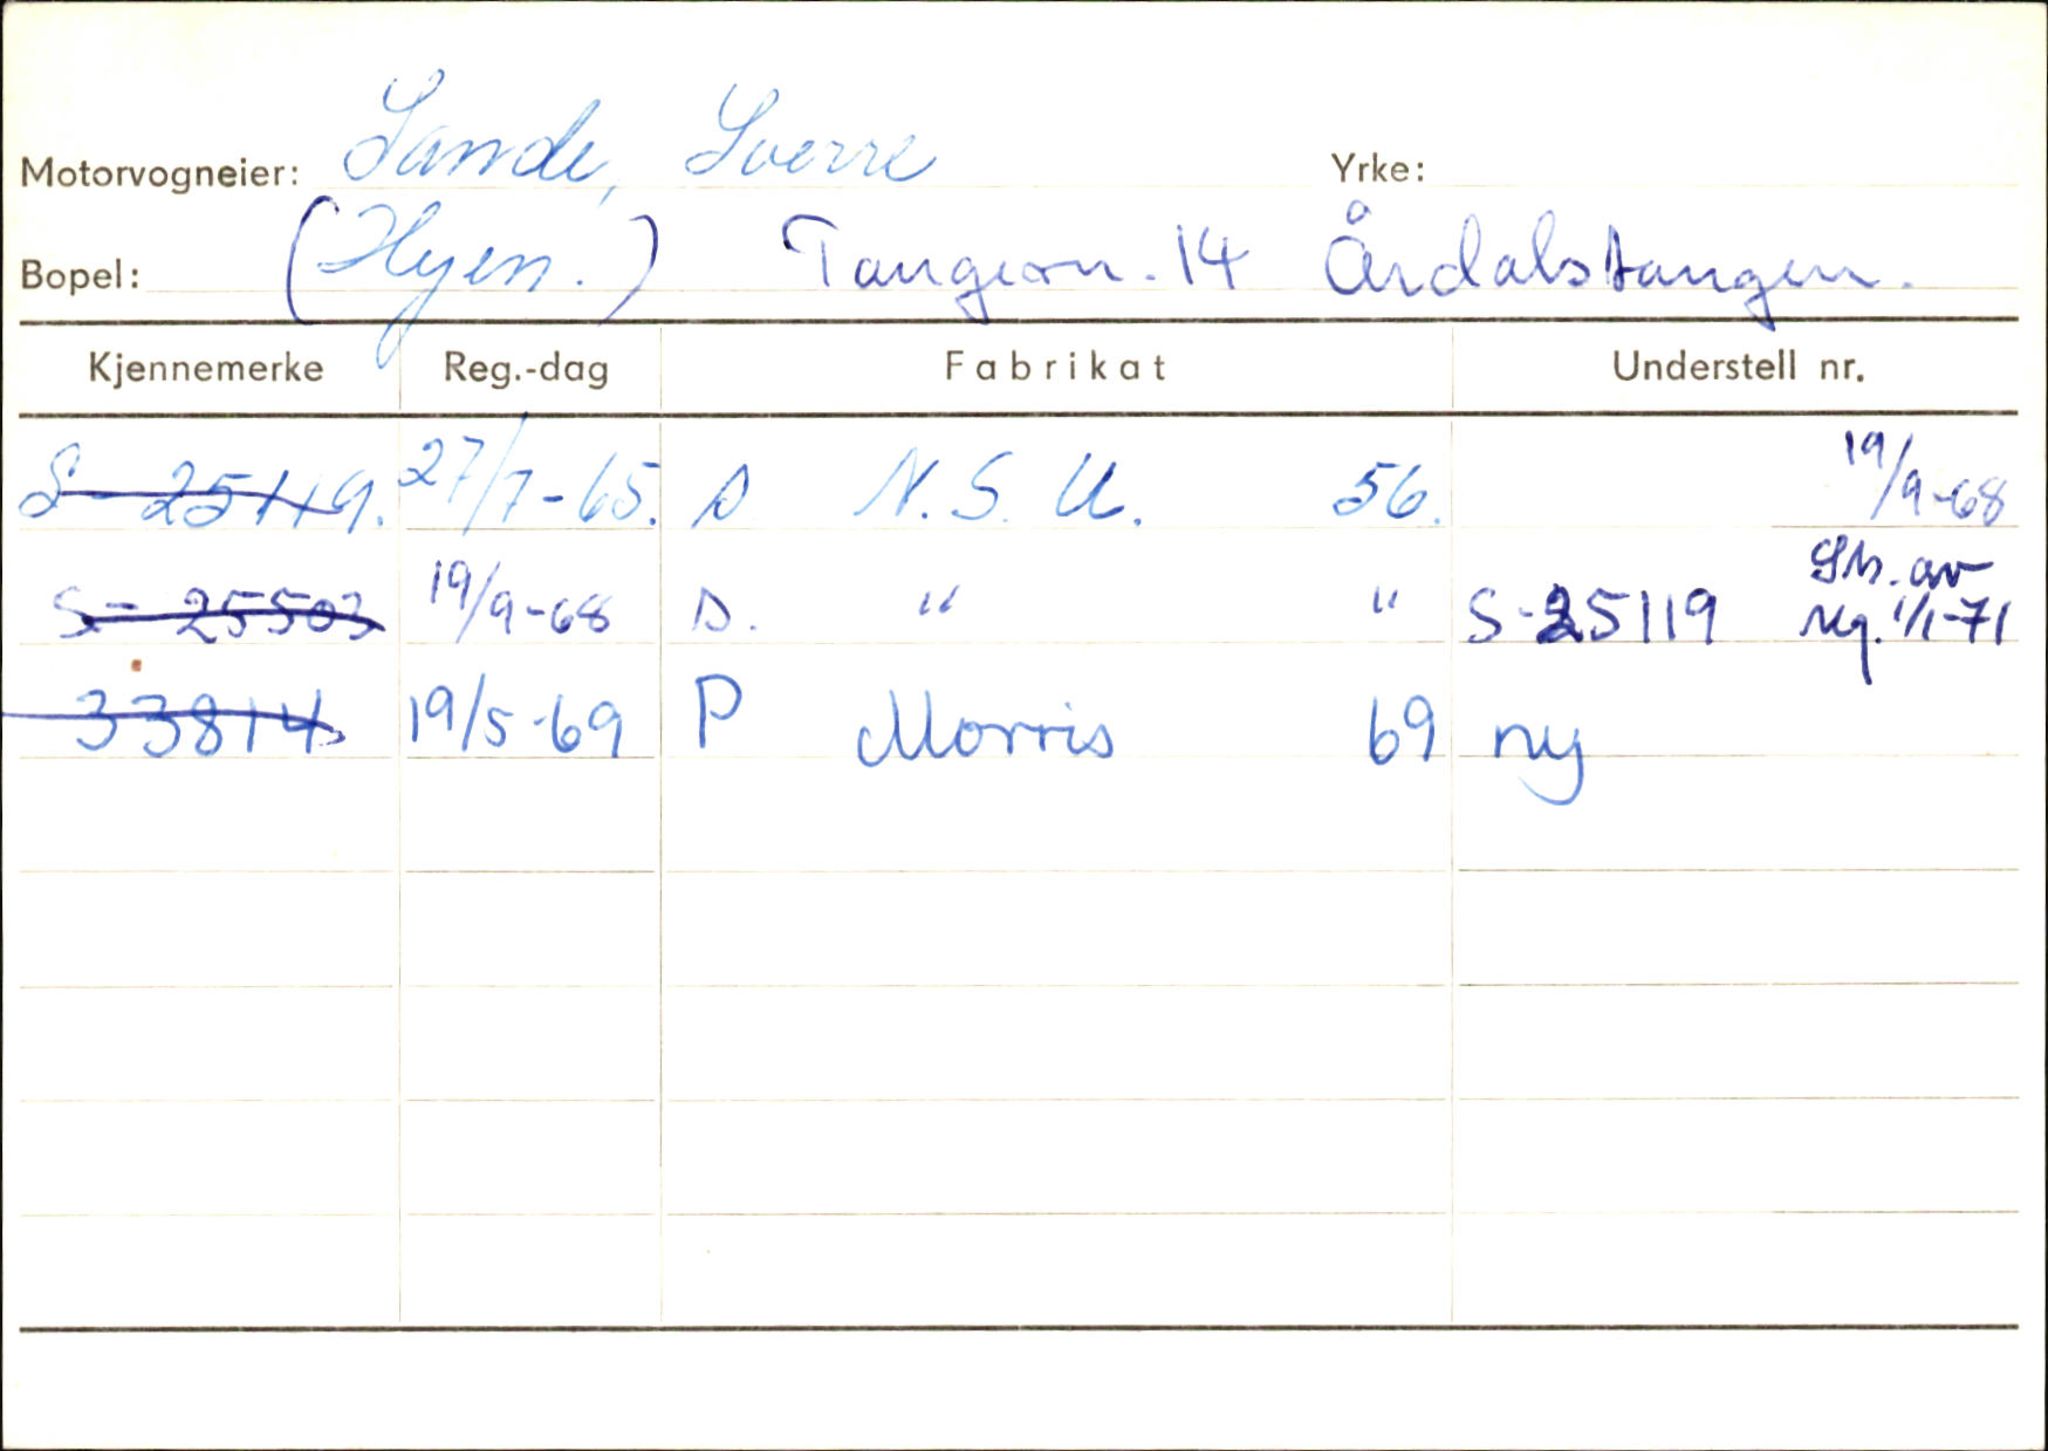 Motorvogneier: Sande, Sverre Yrke:
Bopel: (Hyen.) Tangeon. 14 Årdalstangen.
Kjennemerke Reg.-dag Fabrikat Understell nr.
S-25119. 27/7-65. s N.S.U. 56. 19/9-68
S-25503 19/9-68 s. " " S-25119 Sk. av reg. 1/1-71
33814 19/5-69 P Morris 69 ny